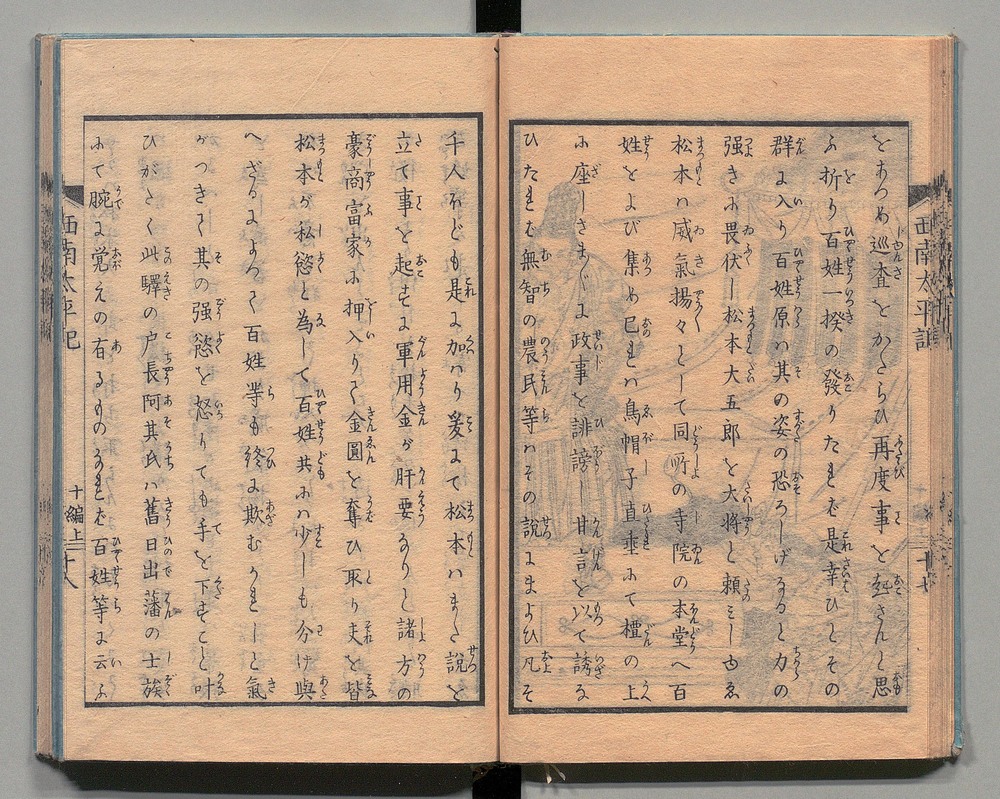 をあつめ巡査をかたらひ再度事を起さんと思
ふ折り百姓一揆の發りたれバ是幸ひとその
群に入り百姓原ハ其の姿の恐ろしげなると力の
强きに畏伏し松本大五郎を大将と頼みしゆゑ
松本ハ威氣揚々として同所の寺院の本堂へ百
姓をよび集め己れハ烏帽子直垂にて檀の上
に座しさま〲に政事を誹謗し甘言を以て誘な
ひたれバ無智の農民等ハその説にまよひ凡そ
西南太平記
十編上
二十七
千人ほども是に加ハり爰にて松本ハまた説を
立て事を起すに軍用金が肝要なりと諸方の
豪商富家に押入りて金圓を奪ひ取り夫を皆
松本が私慾と為して百姓共にハ少しも分け與
へざるによつて百姓等も終に欺むかれしと氣
がつきて其の强慾を怒りても手を下すこと叶
ひがたく此驛の户長阿其氏ハ舊日出藩の士族
にて腕に覚えの有るものなれバ百姓等に云ふ
西南太平記
十編上
二十八